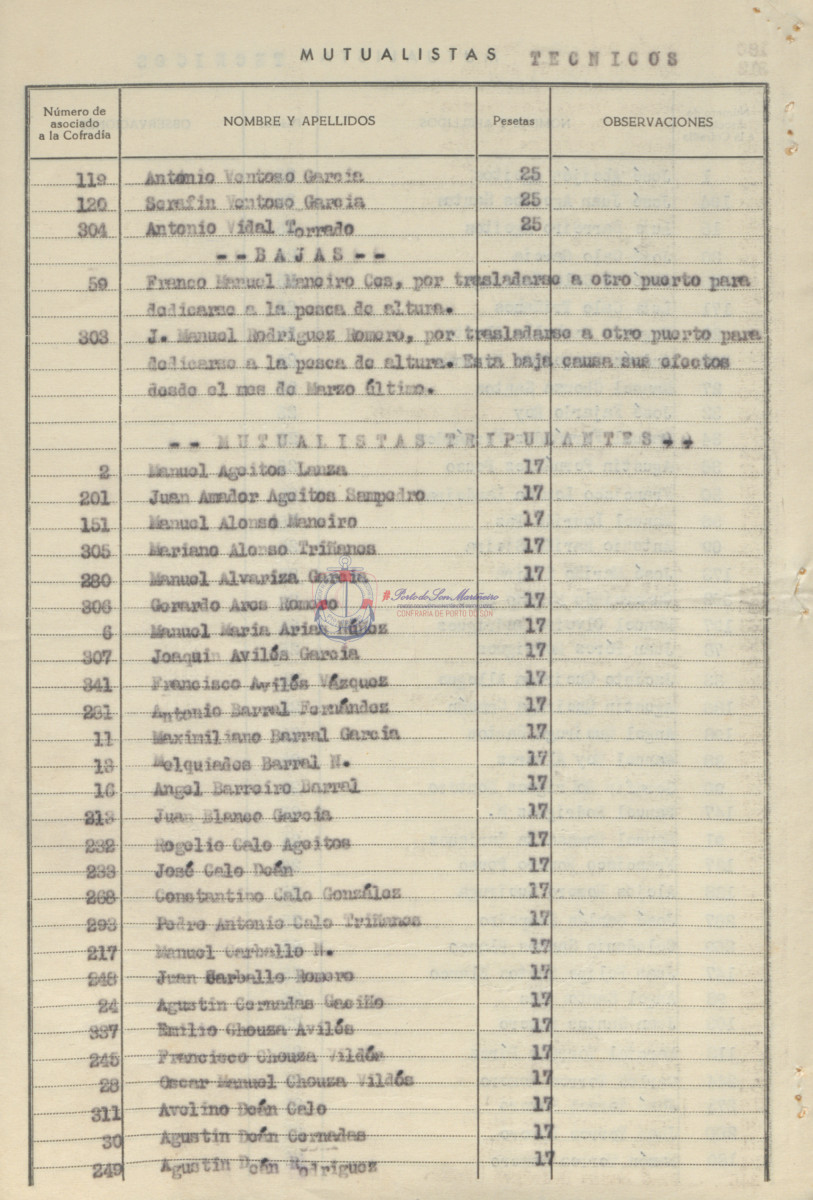 MUTUALISTAS TECNICOS
Número de asociado a la Cofradía NOMBRE Y APELLIDOS Pesetas OBSERVACIONES
119 Antonio Ventoso Garcia 25
120 Serafin Ventoso Garcia 25
304 Antonio Vidal Torrado 25
--BAJAS--
59 Franco Manuel Maneiro Cos, por trasladarse a otro puerto para
dedicarse a la pesca de altura.
303 J. Manuel Rodriguez Romero, por trasladarse a otro puerto para
dedicarse a la pesca de altura. Esta baja causa sus efectos
desde el mes de Marzo último.
-- MUTUALISTAS TRIPULANTES
2 Manuel Ageitos Lanza 17
201 Juan Amador Ageitos Sampedro 17
151 Manuel Alonso Maneiro 17
305 Mariano Alonso Triñanes 17
280 Manuel Alvariza García 17
306 Gerardo Ares Romero 17
6 Manuel Maria Arias Núñez 17
307 Joaquin Avilés Garcia 17
341 Francisco Avilés Vázquez 17
231 Antonio Barral Fernández 17
11 Maximiliano Barral Garcia 17
13 Melquiades Barral N. 17
16 Angel Barreiro Barral 17
213 Juan Blanco Garcia 17
232 Rogelio Calo Ageitos 17
233 José Calo Deán 17
268 Constantino Calo González 17
293 Pedro Antonio Calo Triñanes 17
217 Manuel Carballo N. 17
248 Juan Carballo Romero 17
24 Agustin Cernadas Gaciño 17
337 Emilio Chouza Avilés 17
245 Francisco Chouza 17
28 Oscar Manuel Chouza Vildés 17
311 Avelino Deán Calo 17
30 Agustin Deán Cernadas 17
249 Agustin Deán Rodriguez 17
Porto do Son Mariñeiro
CONFRARIA DE PORTO DO SON